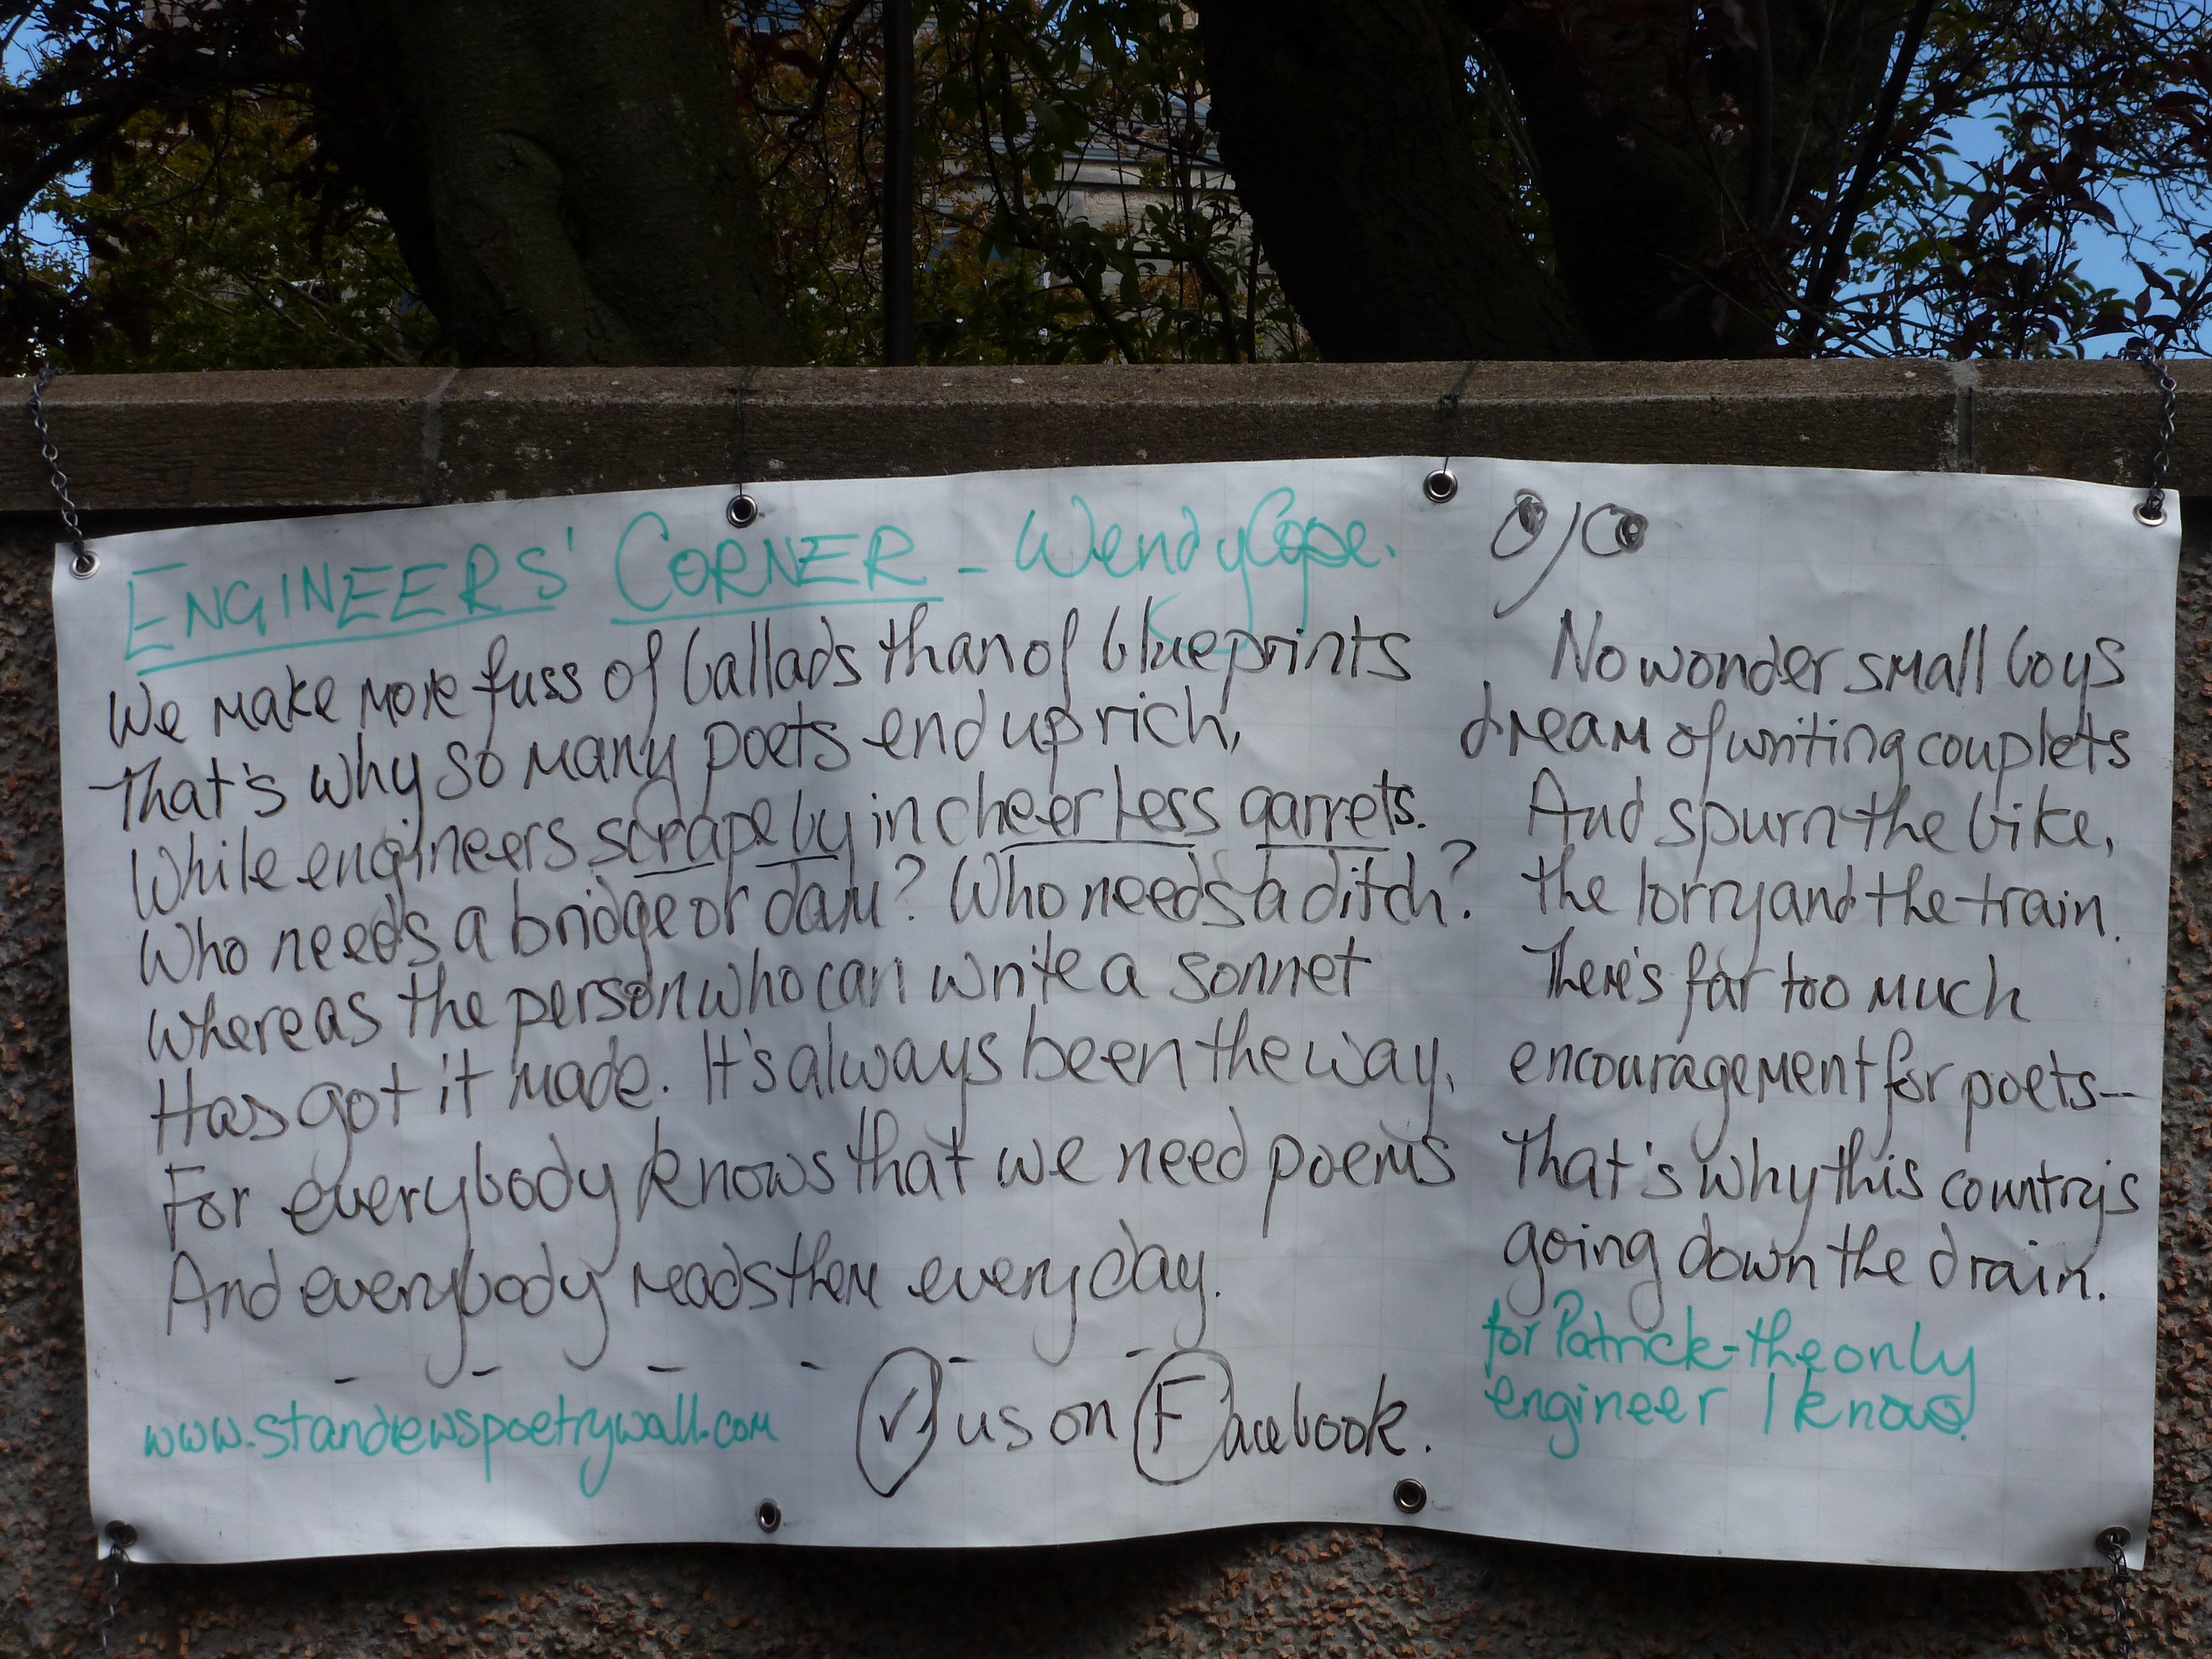 ENGINEERS' CORNER - Wendy Cope.
We make more fuss of ballads than of blueprints
That's why so many poets end up rich,
While engineers scrape by in cheerless garrets.
Who needs a bridge or dam? Who needs a ditch?
Whereas the person who can write a sonnet
Has got it made. It's always been the way,
For everybody knows that we need poems
And everybody reads them every day.
www.standrewspoetrywall.com
us on Facebook.
No wonder small boys
dream of writing couplets
And spurn the bike,
the lorry and the train.
There's far too much
encouragement for poets-
That's why this country's
going down the drain.
for Patrick - the only
engineer I know.